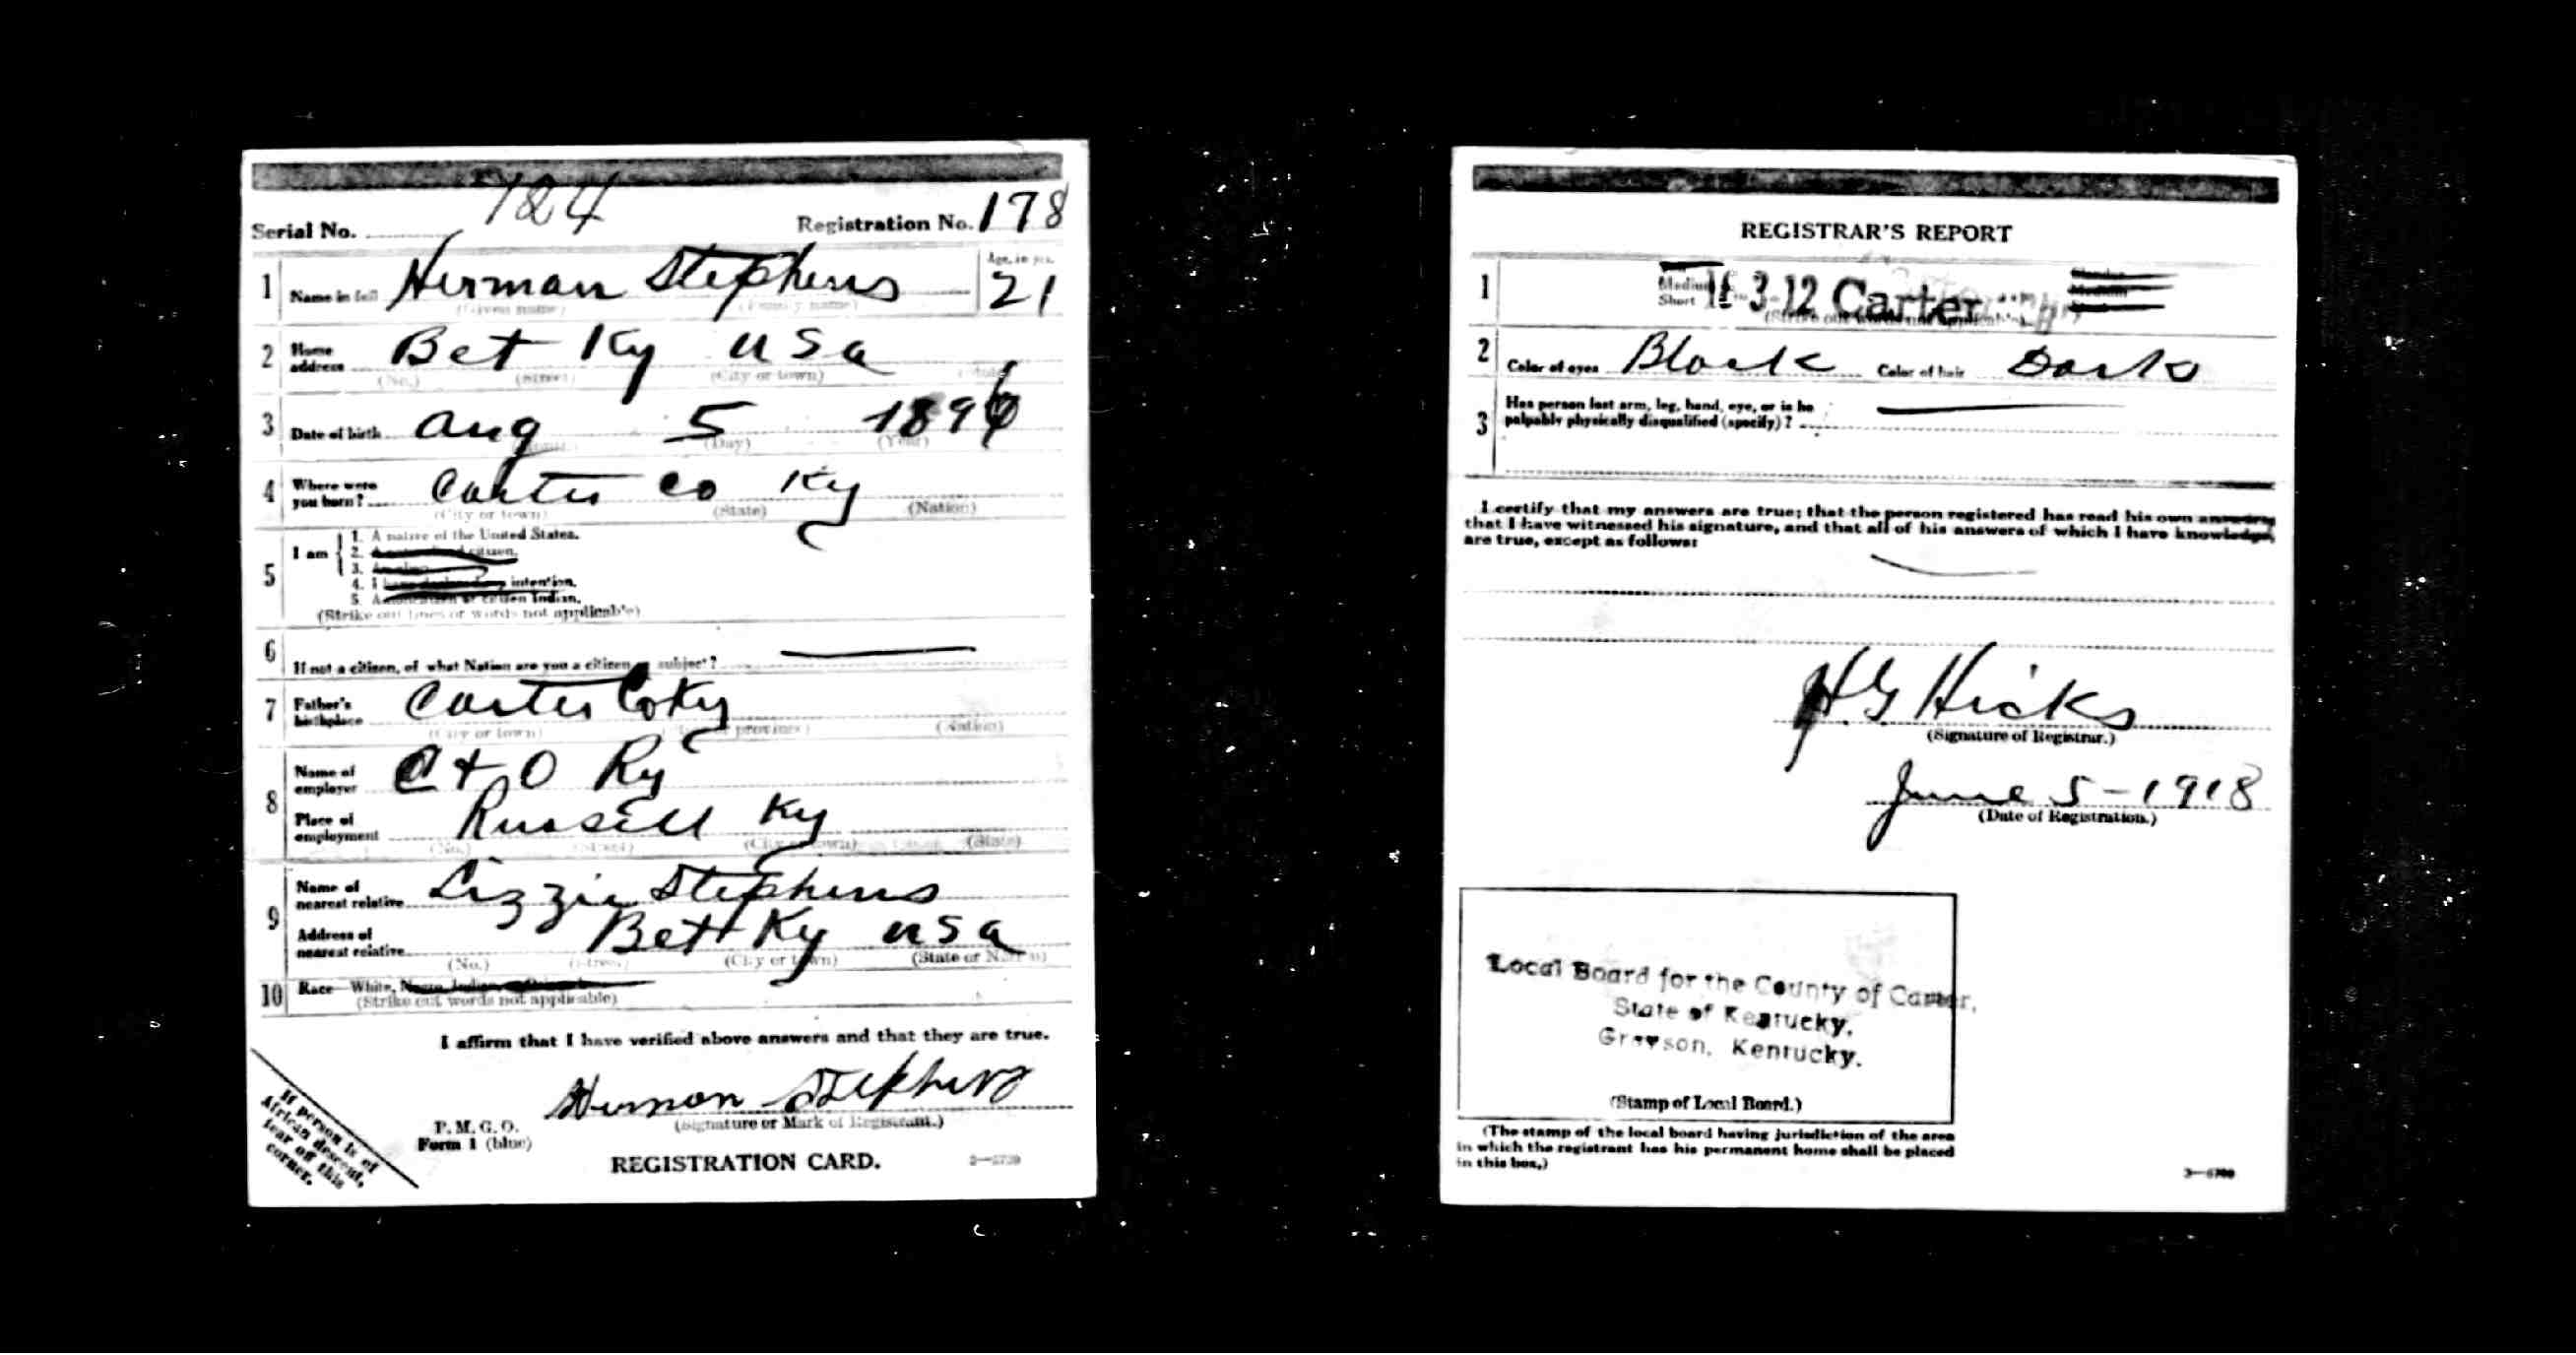 Serial No. 124 Registration No. 178
1 Name in full Herman Stephens Age, in yrs. 21
(Given name) (Family name)
2 Home address Bet Ky USa
(No.) (Street) (City or town) (State)
3 Date of birth Aug 5 1896
(Month) (Day) (Year)
4 Where were you born? Carter Co Ky
(City or town) (State) (Nation)
5 I am 1. A native of the United States.
2. citizen.
3.
4. I intention.
5. citizen Indian.
(Strike out lines or words not applicable)
6 If not a citizen, of what Nation are you a citizen or subject?
7 Father's birthplace Carter Co Ky
(City or town) (State or province) (Nation)
8 Name of employer C + O Ry
Place of employment Russell Ky
(No.) (Street) (City or town) (State)
9 Name of nearest relative Lizzie Stephens
Address of nearest relative Bett Ky USa
(No.) (Street) (City or town) (State or Nation)
10 Race White, Negro, Indian,
(Strike out words not applicable)
I affirm that I have verified above answers and that they are true.
Herman Stephens
(Signature or Mark of Registrant.)
P. M. G. O.
Form 1 (blue)
REGISTRATION CARD.
If person is of
African descent,
tear off this
corner.
REGISTRAR'S REPORT
1 Medium
Short 16-3-12 Carter
(Strike out words not applicable)
2 Color of eyes Black Color of hair Dark
3 Has person lost arm, leg, hand, eye, or is he
palpably physically disqualified (specify)?
I certify that my answers are true; that the person registered has read his own answers,
that I have witnessed his signature, and that all of his answers of which I have knowledge,
are true, except as follows:
H G Hicks
(Signature of Registrar.)
June 5-1918
(Date of Registration.)
Local Board for the County of Carter,
State of Kentucky,
Grayson, Kentucky.
(Stamp of Local Board.)
(The stamp of the local board having jurisdiction of the area
in which the registrant has his permanent home shall be placed
in this box.)